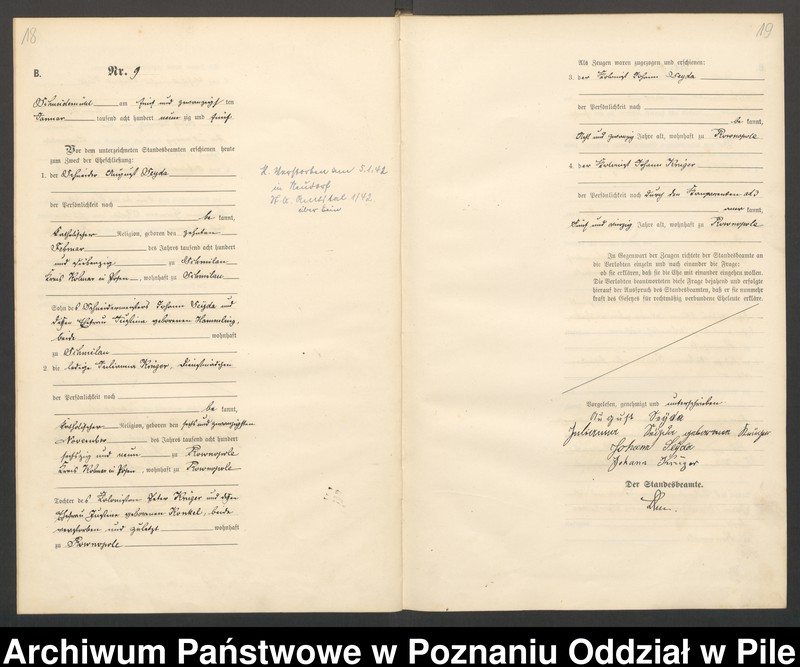 18
B. Nr. 9
Schneidemühl am fünf und zwanzigsten
Januar tausend acht hundert neun zig und fünf.
Vor dem unterzeichneten Standesbeamten erschienen heute
zum Zweck der Eheschließung:
1. der Schneider August Seyda
der Persönlichkeit nach
be kannt,
katholischer Religion, geboren den zehnten
Februar des Jahres tausend acht hundert
und siebenzig zu Schmilau
Kreis Kolmar in Posen, wohnhaft zu Schmilau
Sohn des Schneidermeisters Johann Seyda und
dessen Ehefrau Justina geborenen Hammling,
beide wohnhaft
zu Schmilau
2. die ledige Julianna Krüger, Dienstmädchen
der Persönlichkeit nach
be kannt,
katholischer Religion, geboren den sechs und zwanzigsten
November des Jahres tausend acht hundert
sechszig und neun zu Rownopole
Kreis Kolmar in Posen, wohnhaft zu Rownopole
Tochter des Kolonisten Peter Krüger und dessen
Ehefrau Justine geborenen Konkel, beide
verstorben und zuletzt wohnhaft
zu Rownopole
verstorben am 3.1.42
in Neudorf
1/42
19
Als Zeugen waren zugezogen und erschienen:
3. der Kolonist Johann Seyda
der Persönlichkeit nach
be kannt,
und zwanzig Jahre alt, wohnhaft zu Rownopole
4. der Kolonist Johann Krüger
der Persönlichkeit nach durch den Komparenten ad 3
aner kannt,
fünf und vierzig Jahre alt, wohnhaft zu Rownopole
In Gegenwart der Zeugen richtete der Standesbeamte an
die Verlobten einzeln und nach einander die Frage:
ob sie erklären, daß sie die Ehe mit einander eingehen wollen.
Die Verlobten beantworteten diese Frage bejahend und erfolgte
hierauf der Ausspruch des Standesbeamten, daß er sie nunmehr
kraft des Gesetzes für rechtmäßig verbundene Eheleute erkläre.
Vorgelesen, genehmigt und unterschrieben
August Seyda
Julianna Seyda geborene Krüger
Johann Seyda
Johann Krüger
Der Standesbeamte.
Archiwum Państwowe w Poznaniu Oddział w Pile